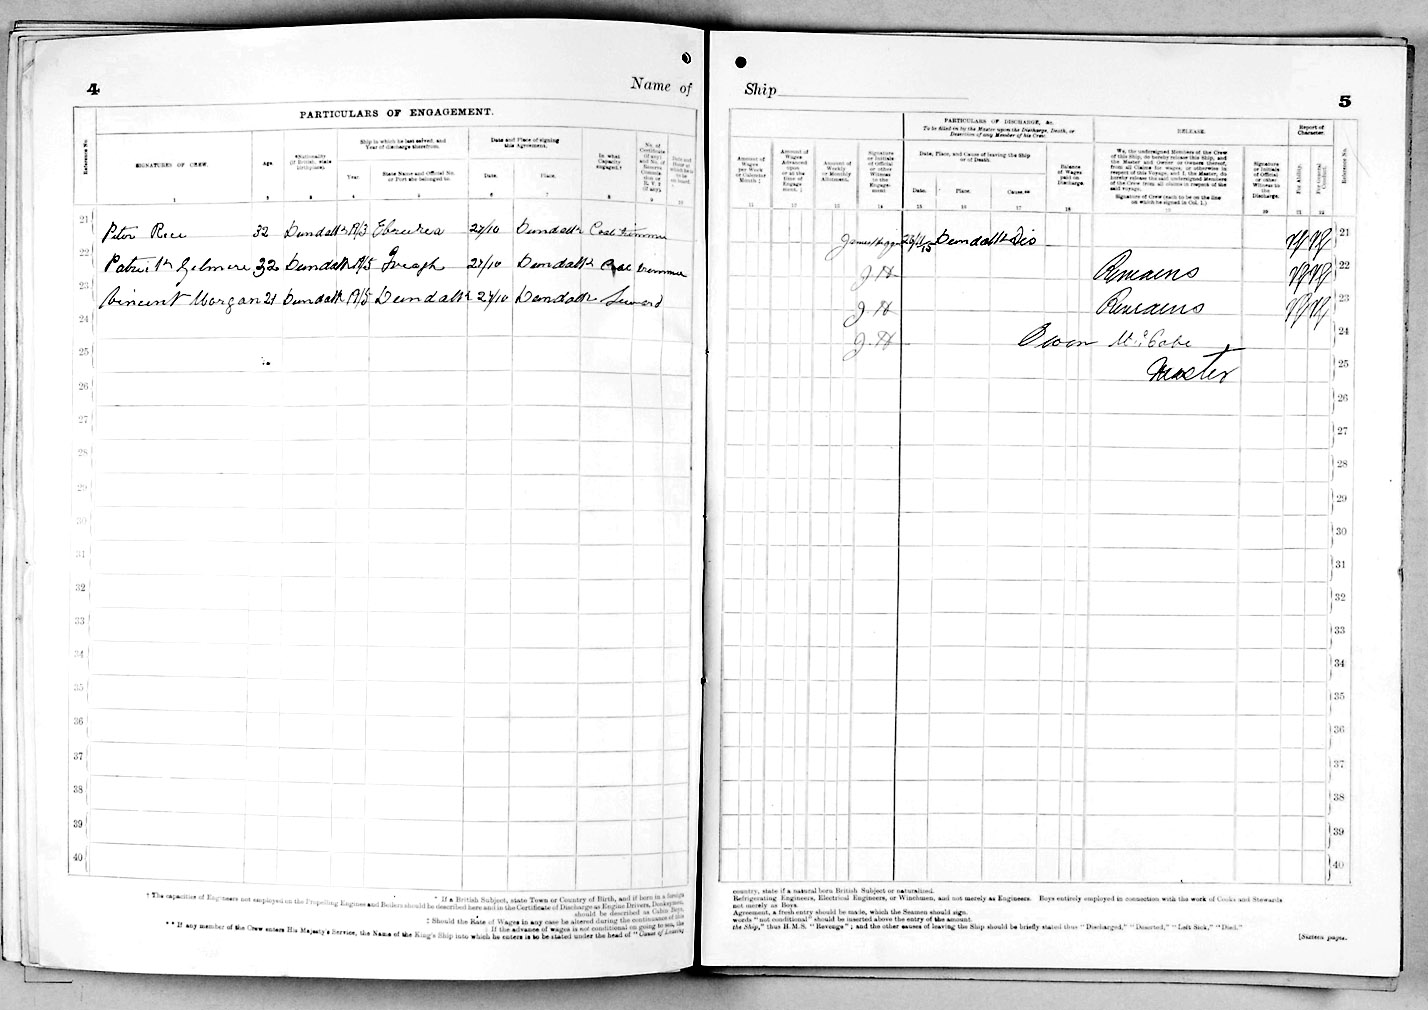 4
Name of
PARTICULARS OF ENGAGEMENT.
Reference No.
SIGNATURES OF CREW.
Age.
*Nationality (if British, state birthplace).
Ship in which he last served, and Year of discharge therefrom.
Year.
State Name and Official No. or Port she belonged to.
Date and Place of signing this Agreement.
Date.
Place.
In what Capacity engaged.†
1 2 3 4 5 6 7 8 9 10
21 Peter Rice 32 Dundalk 1913 27/10 Dundalk Coal trimmer
22 Patrick Gilmore 32 Dundalk 1915 Iveagh 27/10 Dundalk Coal trimmer
23 Vincent Morgan 21 Dundalk 1915 Dundalk 27/10 Dundalk
24
25
26
27
28
29
30
31
32
33
34
35
36
37
38
39
40
* If a British Subject, state Town or Country of Birth, and if born in a foreign
† The capacities of Engineers not employed on the Propelling Engines and Boilers should be described here and in the Certificate of Discharge as Engine Drivers, Donkeymen,
should be described as Cabin Boys,
‡ Should the Rate of Wages in any case be altered during the continuance of this
; If the advance of wages is not conditional on going to sea, the
** If any member of the Crew enters His Majesty's Service, the Name of the King's Ship into which he enters is to be stated under the head of "Cause of Leaving
Ship
5
PARTICULARS OF DISCHARGE, &c.
To be filled in by the Master upon the Discharge, Death, or Desertion of any Member of his Crew.
RELEASE.
Report of Character.
Amount of Wages per Week or Calendar Month ‡
Amount of Wages Advanced upon or at the time of Engagement. ;
Amount of Weekly or Monthly Allotment.
Signature or Initials of Official or other Witness to the Engagement.
Date, Place, and Cause of leaving the Ship or of Death.
Date.
Place.
Cause.**
Balance of Wages paid on Discharge.
We, the undersigned Members of the Crew of this Ship, do hereby release this Ship, and the Master and Owner or owners thereof, from all Claims for wages, or otherwise in respect of this Voyage, and I, the Master, do hereby release the said undersigned Members of the Crew from all claims in respect of the said voyage.
Signature of Crew (each to be on the line on which he signed in Col. 1.)
Signature or Initials of Official or other Witness to the Discharge.
For Ability.
For General Conduct.
Reference No.
11 12 13 14 15 16 17 18 19 20 21 22
Dundalk Dis VG VG 21
J.H Remains VG VG 22
J.H Remains VG VG 23
J.H Owen McCabe 24
Master 25
26
27
28
29
30
31
32
33
34
35
36
37
38
39
40
country, state if a natural born British Subject or naturalized.
Refrigerating Engineers, Electrical Engineers, or Winchmen, and not merely as Engineers. Boys entirely employed in connection with the work of Cooks and Stewards
not merely as Boys.
Agreement, a fresh entry should be made, which the Seamen should sign.
words "not conditional" should be inserted above the entry of the amount.
the Ship," thus H.M.S. "Revenge"; and the other causes of leaving the Ship should be briefly stated thus "Discharged," "Deserted," "Left Sick," "Died."
[Sixteen pages.